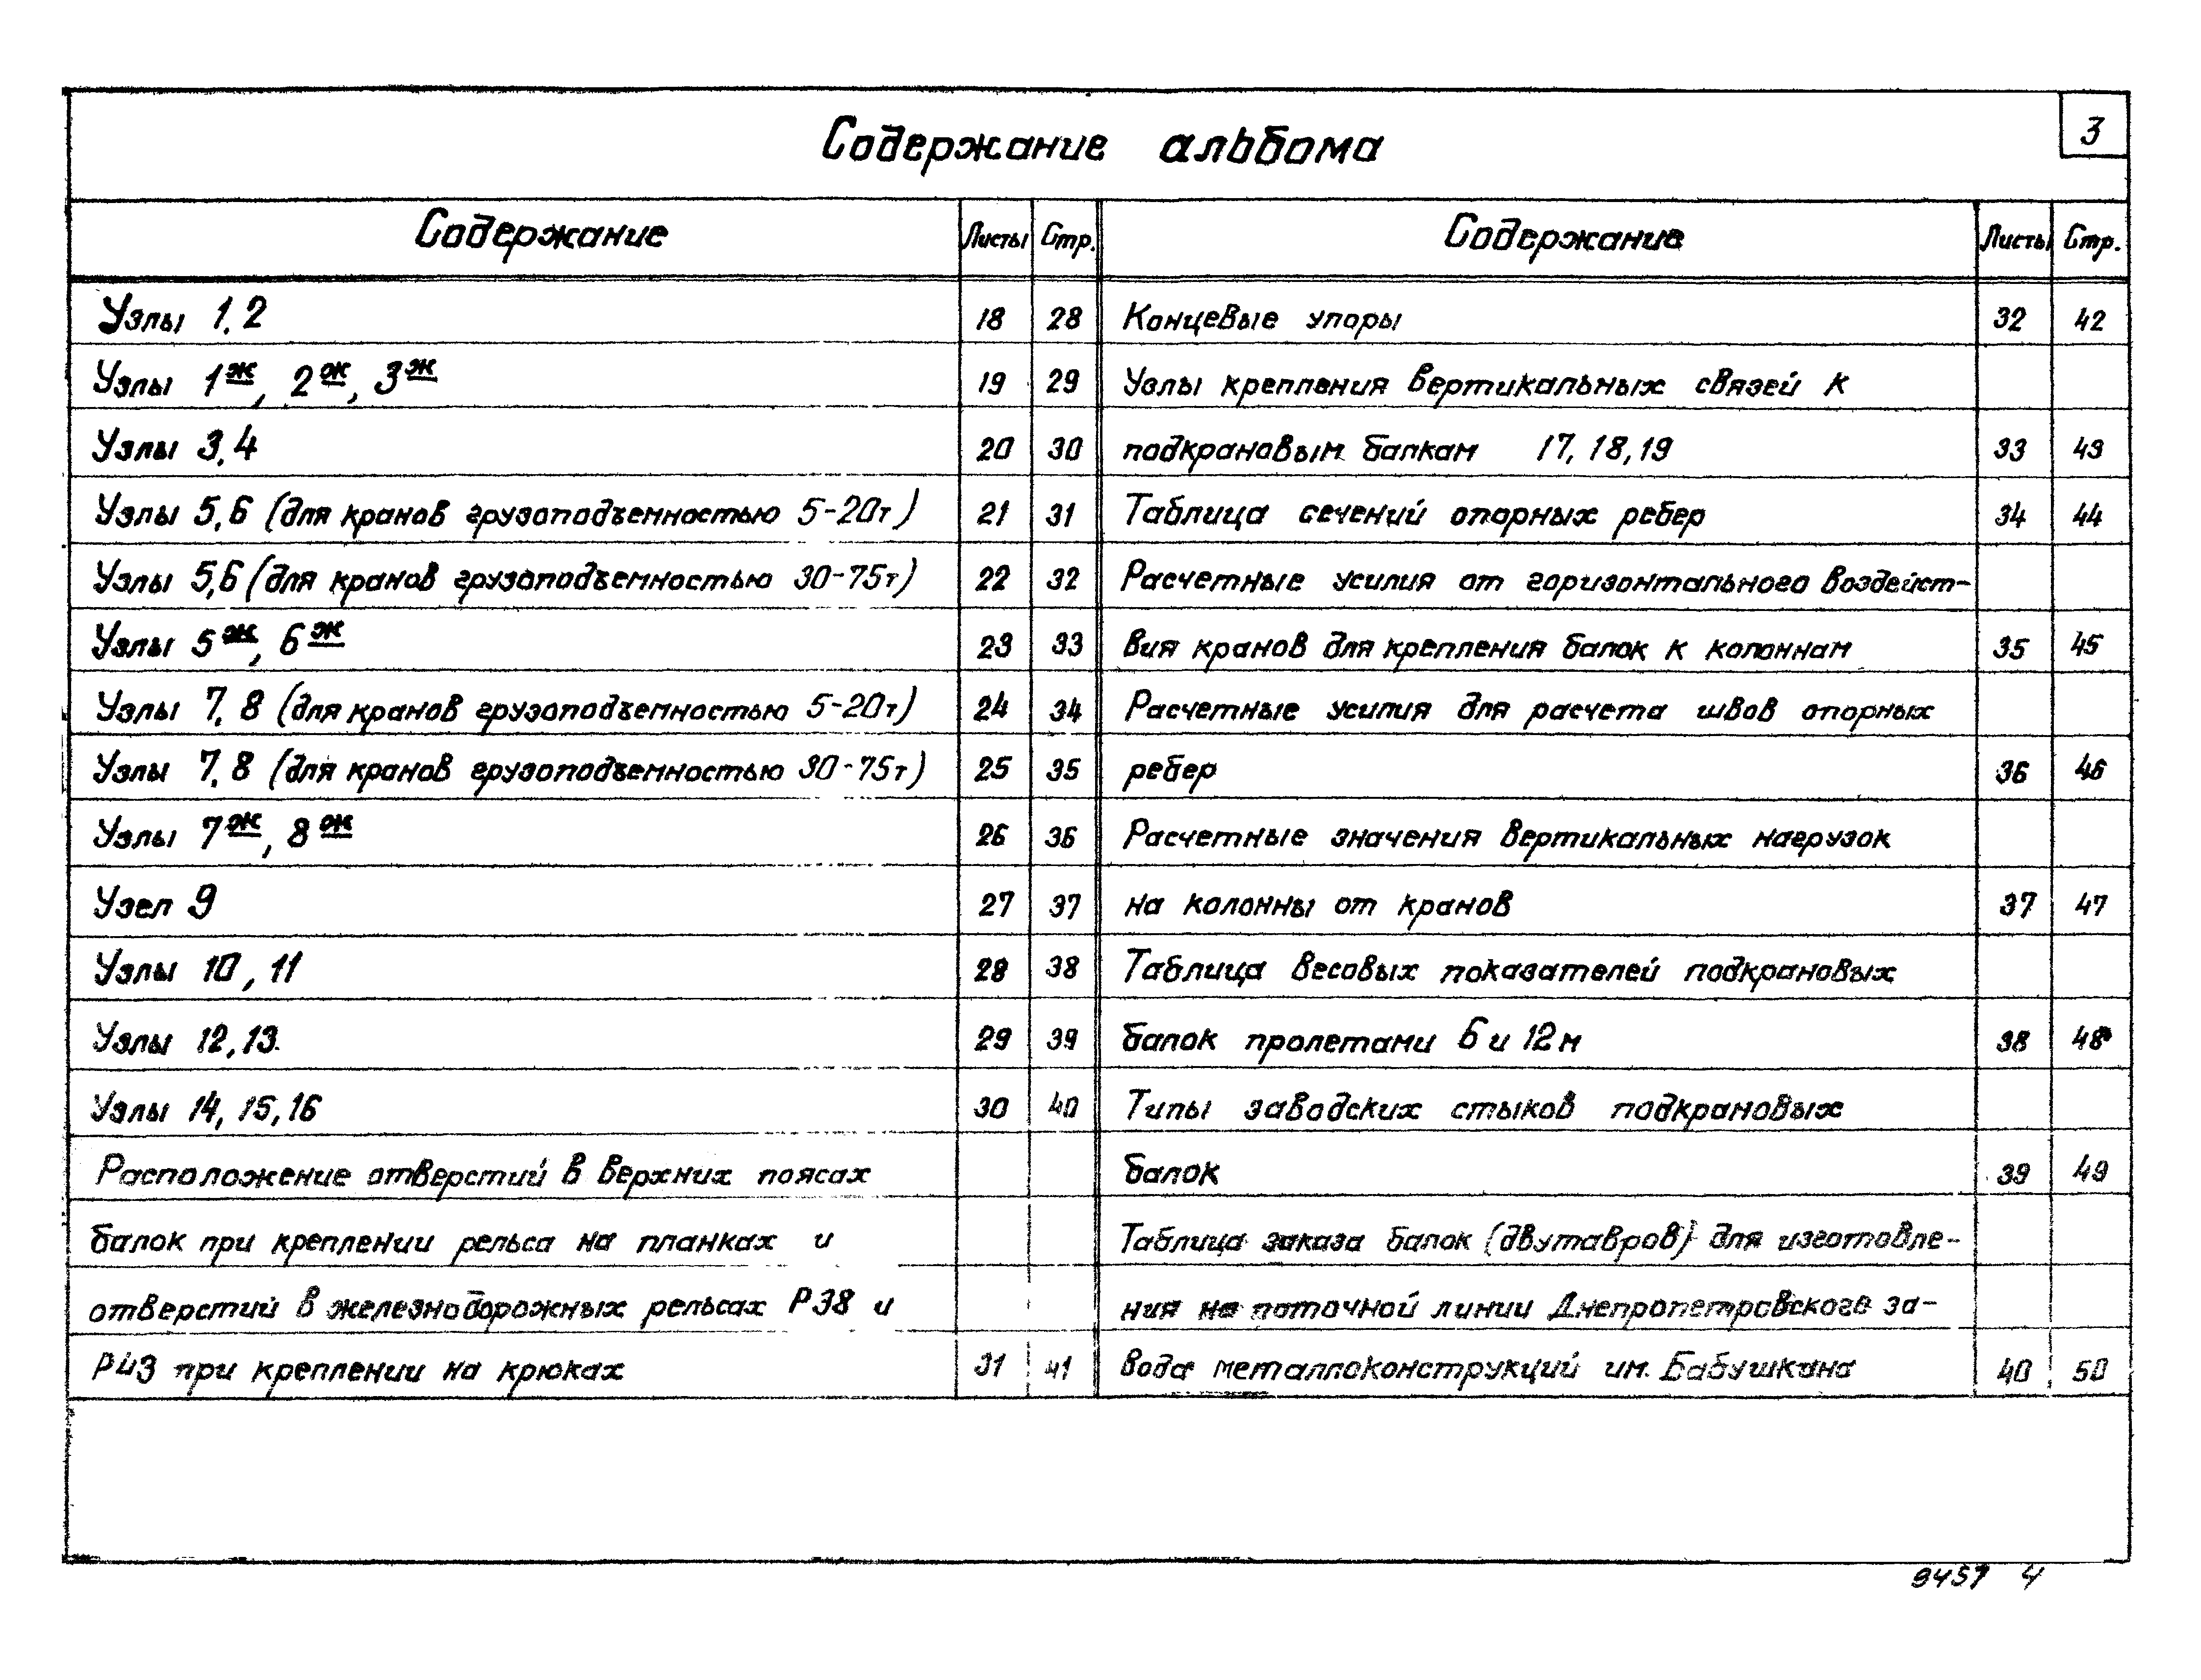 3
Содержание альбома
Содержание Листы Стр.
Узлы 1,2 18 28
Узлы 1ж, 2ж, 3ж 19 29
Узлы 3,4 20 30
Узлы 5,6 (для кранов грузоподъемностью 5-20т) 21 31
Узлы 5,6 (для кранов грузоподъемностью 30-75т) 22 32
Узлы 5ж, 6ж 23 33
Узлы 7,8 (для кранов грузоподъемностью 5-20т) 24 34
Узлы 7,8 (для кранов грузоподъемностью 30-75т) 25 35
Узлы 7ж, 8ж 26 36
Узел 9 27 37
Узлы 10, 11 28 38
Узлы 12,13. 29 39
Узлы 14, 15, 16 30 40
Расположение отверстий в верхних поясах
балок при креплении рельса на планках и
отверстий в железнодорожных рельсах Р38 и
Р43 при креплении на крюках 31 41
Содержание Листы Стр.
Концевые упоры 32 42
Узлы крепления вертикальных связей к
подкрановым балкам 17, 18, 19 33 43
Таблица сечений опорных ребер 34 44
Расчетные усилия от горизонтального воздейст-
вия кранов для крепления балок к колоннам 35 45
Расчетные усилия для расчета швов опорных
ребер 36 46
Расчетные значения вертикальных нагрузок
на колонны от кранов 37 47
Таблица весовых показателей подкрановых
балок пролетами 6 и 12м 38 48
Типы заводских стыков подкрановых
балок 39 49
Таблица заказа балок (двутавров) для изготовле-
ния на поточной линии Днепропетровского за-
вода металлоконструкций им. Бабушкина 40 50
4